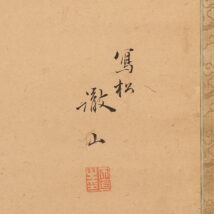 寫松
徹山